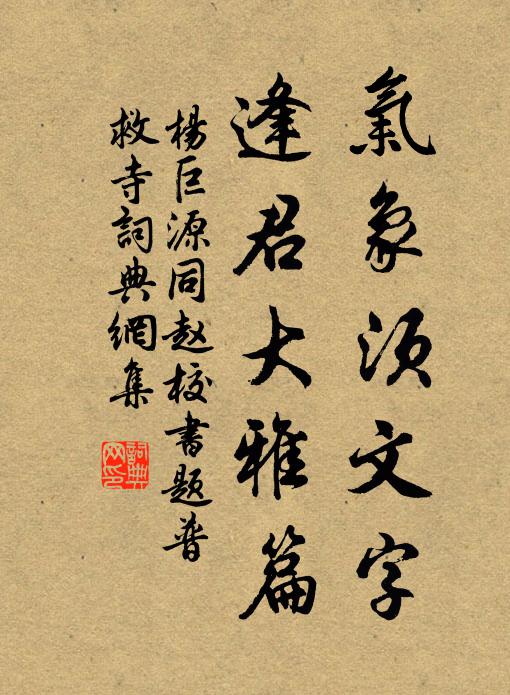 氣象須文字
逢君大雅篇
楊巨源同赵校書題普
救寺詞典網集
詞典
网印